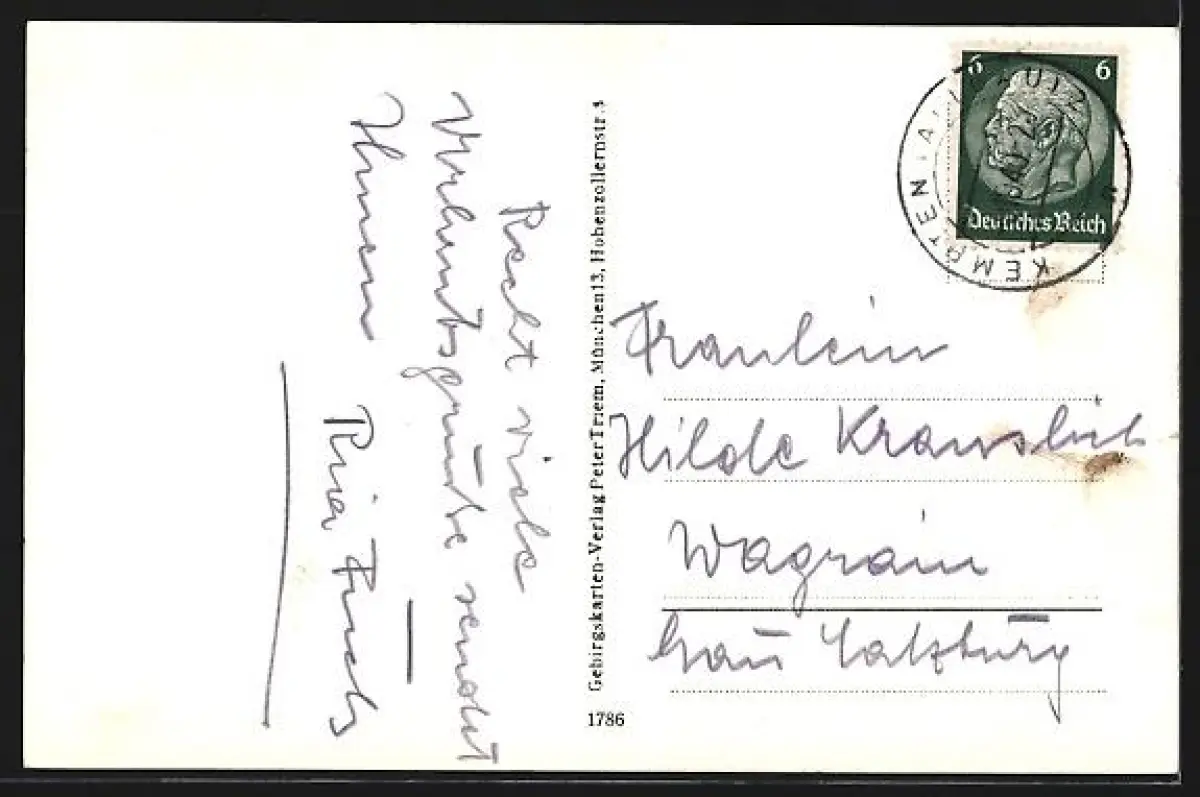 Recht viele
Urlaubsgrüße sendet
Ihnen
Ria Fuchs
Gebirgskarten-Verlag Peter Triem, München 13, Hohenzollernstr. 3
1786
6 6
Deutsches Reich
KEMPTEN (ALLGÄU) 2
Fräulein
Hilde
Wagrain
Gau Salzburg